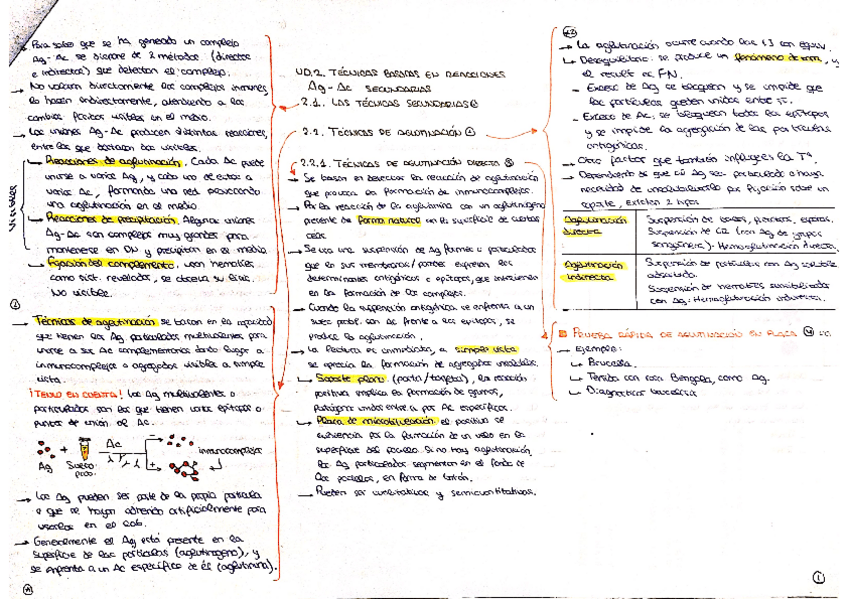 → Para saber que se ha generado un complejo
Ag-Ac se dispone de 2 métodos (directos
e indirectos) que detectan el complejo.
→ No valoran directamente los complejos inmunes,
lo hacen indirectamente, atendiendo a los
cambios físicos visibles en el medio.
→ Las uniones Ag-Ac producen distintas reacciones,
entre las que destacan dos visibles.
Visibles
↳ Reacciones de aglutinación. Cada Ac puede
unirse a varios Ag, y cada uno de estos a
varios Ac, formando una red produciendo
una aglutinación en el medio.
↳ Reacciones de precipitación. Algunas uniones
Ag-Ac son complejos muy grandes para
mantenerse en DN y precipitan en el medio.
↳ Fijación del complemento. usan hematíes
como sist. revelador, se observa su lisis.
No visible.
②
→ Técnicas de aglutinación se basan en la capacidad
que tienen los Ag particulados multivalentes para
unirse a sus Ac complementarios dando lugar a
inmunocomplejos o agregados visibles a simple
vista.
¡TENLO EN CUENTA! Los Ag multivalentes o
particulados son los que tienen varios epítopos o
puntos de unión al Ac.
Ag + Suero
prob.
Ac
inmunocomplejos
→ Los Ag pueden ser parte de la propia partícula
o que se hayan adherido artificialmente para
usarlos en el lab.
→ Generalmente el Ag está presente en la
superficie de las partículas (aglutinógeno), y
se enfrenta a un Ac específico de él (aglutinina).
UD.2. TÉCNICAS BASADAS EN REACCIONES
Ag-Ac SECUNDARIAS
2.1. LAS TÉCNICAS SECUNDARIAS
2.2. TÉCNICAS DE AGLUTINACIÓN
2.2.1. TÉCNICAS DE AGLUTINACIÓN DIRECTA
→ Se basan en detectar la reacción de aglutinación
que provoca la formación de inmunocomplejos.
→ Por la reacción de la aglutinina con un aglutinógeno
presente de forma natural en la superficie de ciertas
células.
→ Se usa una suspensión de Ag formes o particulados
que en sus membranas/paredes expresan los
determinantes antigénicos o epítopos, que intervienen
en la formación de los complejos.
→ Cuando la suspensión antigénica se enfrenta a un
suero probl. con Ac frente a los epítopos, se
produce la aglutinación.
→ La lectura es inmediata, a simple vista
se aprecia la formación de agregados insolubles.
↳ Soporte plano (porta/tarjeta), la reacción
positiva implica la formación de grumos,
patógenos unidos entre sí por Ac específicos.
↳ Placa de microtitulación el positivo se
evidencia por la formación de un velo en la
superficie del pocillo. Si no hay aglutinación,
los Ag particulados sedimentan en el fondo de
los pocillos, en forma de botón.
→ Pueden ser cualitativas y semicuantitativas.
→ La aglutinación ocurre cuando hay 1:1 con equiv.
→ Desequilibrio: se produce un fenómeno de zona, y
el result es FN.
- Exceso de Ag se bloquean y se impide que
las partículas queden unidas entre sí.
- Exceso de Ac, se bloquean todos los epítopos
y se impide la agregación de las partículas
antigénicas.
→ Otro factor que también influye es la Tª
→ Dependiendo de que el Ag sea particulado o haya
necesidad de insolubilizarlo por fijación sobre un
soporte, existen 2 tipos
Aglutinación directa
Suspensión de bacterias, plasmodios, esporas.
Suspensión de GR (con Ag de grupos
sanguíneos). Hemaglutinación directa.
Aglutinación indirecta
Suspensión de partículas con Ag soluble
adsorbido.
Suspensión de hematíes sensibilizados
con Ag: Hemaglutinación indirecta.
PRUEBA RÁPIDA DE AGLUTINACIÓN EN PLACA
→ Ejemplo:
↳ Brucella.
↳ Teñido con rosa Bengala, como Ag.
↳ Diagnosticar brucelosis
①